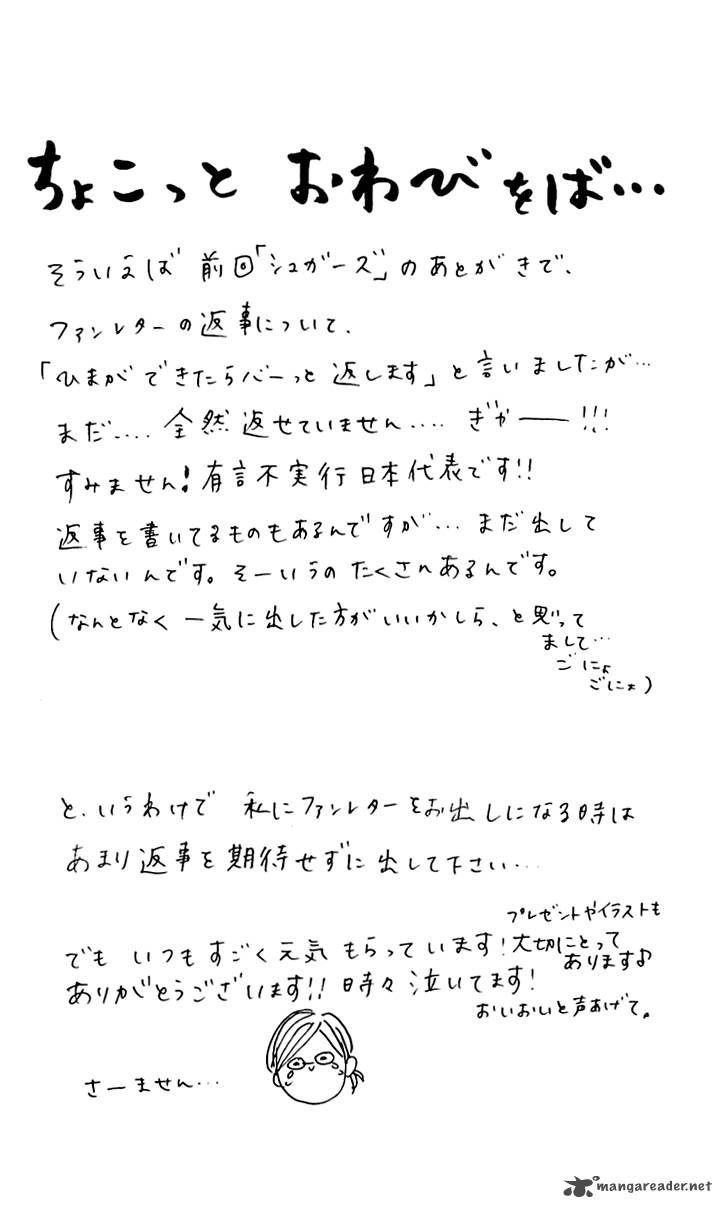 ちょこっと おわびをば…
そういえば 前回「シュガーズ」のあとがきで、
ファンレターの返事について、
「ひまができたらバーっと返します」と言いましたが…
まだ…. 全然返せていません…. ぎゃー!!!
すみません!有言不実行日本代表です!!
返事を書いてるものもあるんですが… まだ出して
いないんです。そーいうのたくさんあるんです。
(なんとなく一気に出した方がいいかしら、と思って
まして…
ごにょ
ごにょ)
と、いうわけで 私にファンレターをお出しになる時は
あまり返事を期待せずに出して下さい…
でも いつもすごく元気もらっています!
プレゼントやイラストも
大切にとって
あります♪
ありがとうございます!! 時々泣いてます!
おいおいと声あげて。
さーません…
mangareader.net